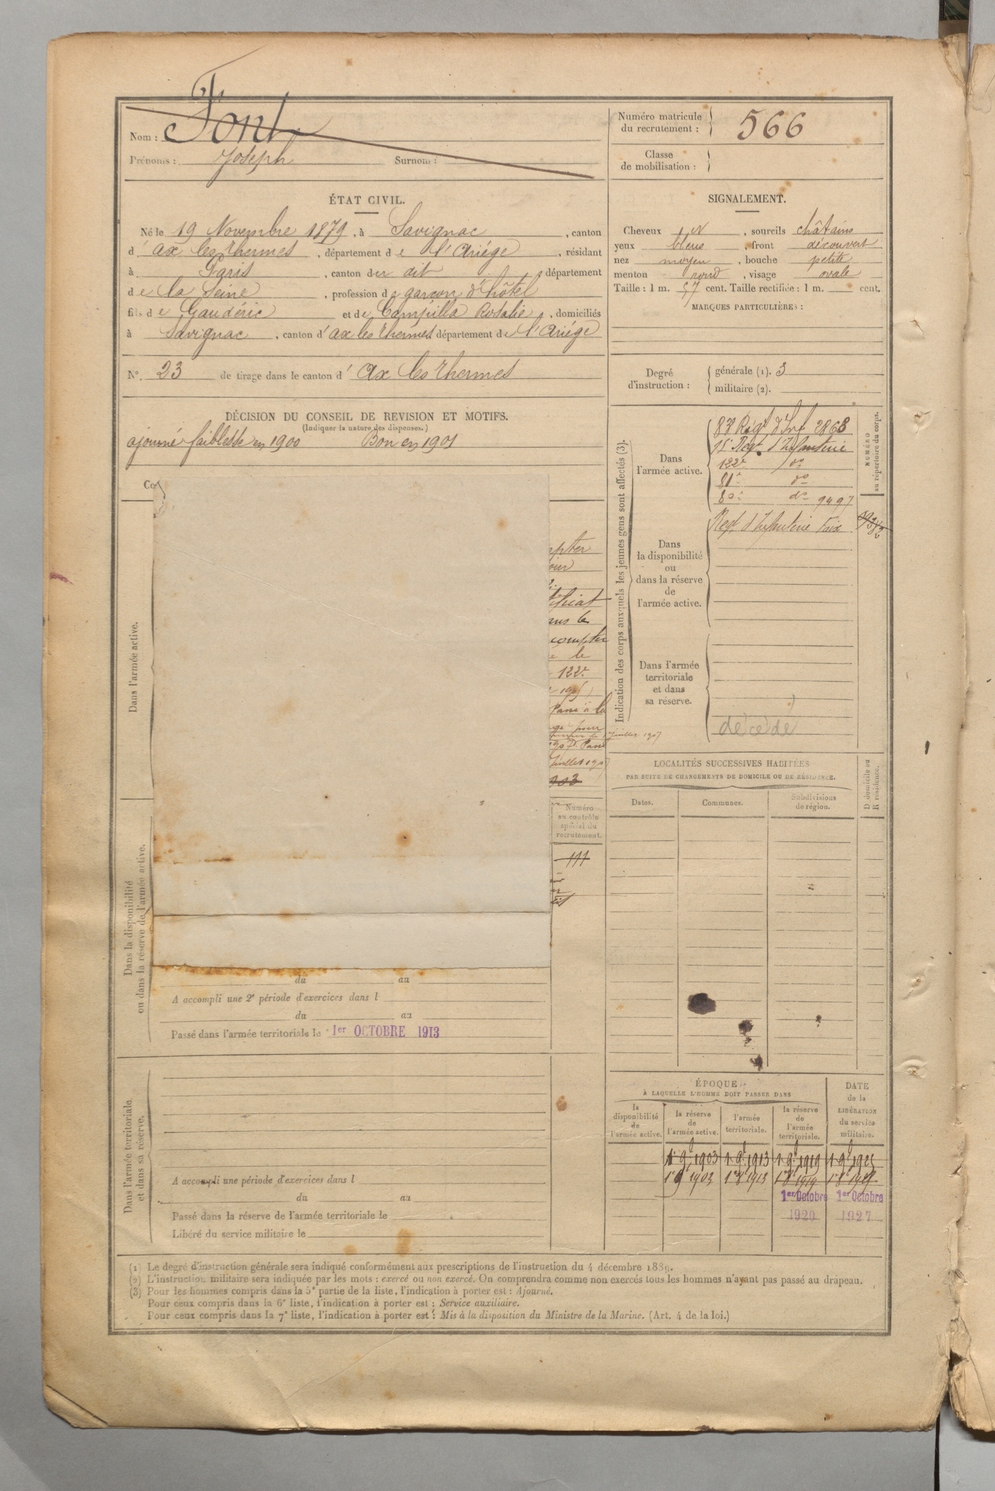 Nom : Font
Prénoms : Joseph Surnom :
Numéro matricule du recrutement : 566
Classe de mobilisation :
ÉTAT CIVIL.
Né le 19 Novembre 1879, à Savignac, canton
d'Ax les Thermes, département de l'Ariége, résidant
à Paris, canton du dit, département
de la Seine, profession de garçon d'hôtel
fils de Gaudéric et de Campilla Rosalie, domiciliés
à Savignac, canton d'Ax les Thermes département de l'Ariége
N° 23 de tirage dans le canton d'Ax les Thermes
SIGNALEMENT.
Cheveux et, sourcils châtains
yeux bleus, front découvert
nez moyen, bouche petite
menton rond, visage ovale
Taille : 1 m. 57 cent. Taille rectifiée : 1 m. cent.
MARQUES PARTICULIÈRES :
Degré d'instruction : générale (1). 3
militaire (2).
DÉCISION DU CONSEIL DE REVISION ET MOTIFS.
(Indiquer la nature des dispenses.)
ajourné faiblesse en 1900 Bon en 1901
Co
Dans l'armée active.
mpter
ans le
compter
le
122e
Passé à la
juillet 1907
1903
Numéro au contrôle spécial du recrutement.
111
Dans la disponibilité ou dans la réserve de l'armée active.
du au
A accompli une 2e période d'exercices dans l
du au
Passé dans l'armée territoriale le 1er OCTOBRE 1913
Dans l'armée territoriale et dans sa réserve.
A accompli une période d'exercices dans l
du au
Passé dans la réserve de l'armée territoriale le
Libéré du service militaire le
Indication des corps auxquels les jeunes gens sont affectés (3).
NUMÉRO au répertoire du corps.
Dans l'armée active.
83 Regt d'Inf 2868
15e Regt d'Infanterie
122e do
81e do
80e do 9497
Dans la disponibilité ou dans la réserve de l'armée active.
Regt d'Infanterie Foix
Dans l'armée territoriale et dans sa réserve.
décédé
LOCALITÉS SUCCESSIVES HABITÉES
PAR SUITE DE CHANGEMENTS DE DOMICILE OU DE RÉSIDENCE.
Dates. Communes. Subdivisions de région. D. domicile ou R. résidence.
ÉPOQUE
À LAQUELLE L'HOMME DOIT PASSER DANS
DATE de la LIBÉRATION du service militaire.
la disponibilité de l'armée active. la réserve de l'armée active. l'armée territoriale. la réserve de l'armée territoriale.
1er 9bre 1903 1 9bre 1913 1 9bre 1919 1 9bre 1925
1er Octobre 1920 1er Octobre 1927
(1) Le degré d'instruction générale sera indiqué conformément aux prescriptions de l'instruction du 4 décembre 1889.
(2) L'instruction militaire sera indiquée par les mots : exercé ou non exercé. On comprendra comme non exercés tous les hommes n'ayant pas passé au drapeau.
(3) Pour les hommes compris dans la 5e partie de la liste, l'indication à porter est : Ajourné.
Pour ceux compris dans la 6e liste, l'indication à porter est : Service auxiliaire.
Pour ceux compris dans la 7e liste, l'indication à porter est : Mis à la disposition du Ministre de la Marine. (Art. 4 de la loi.)